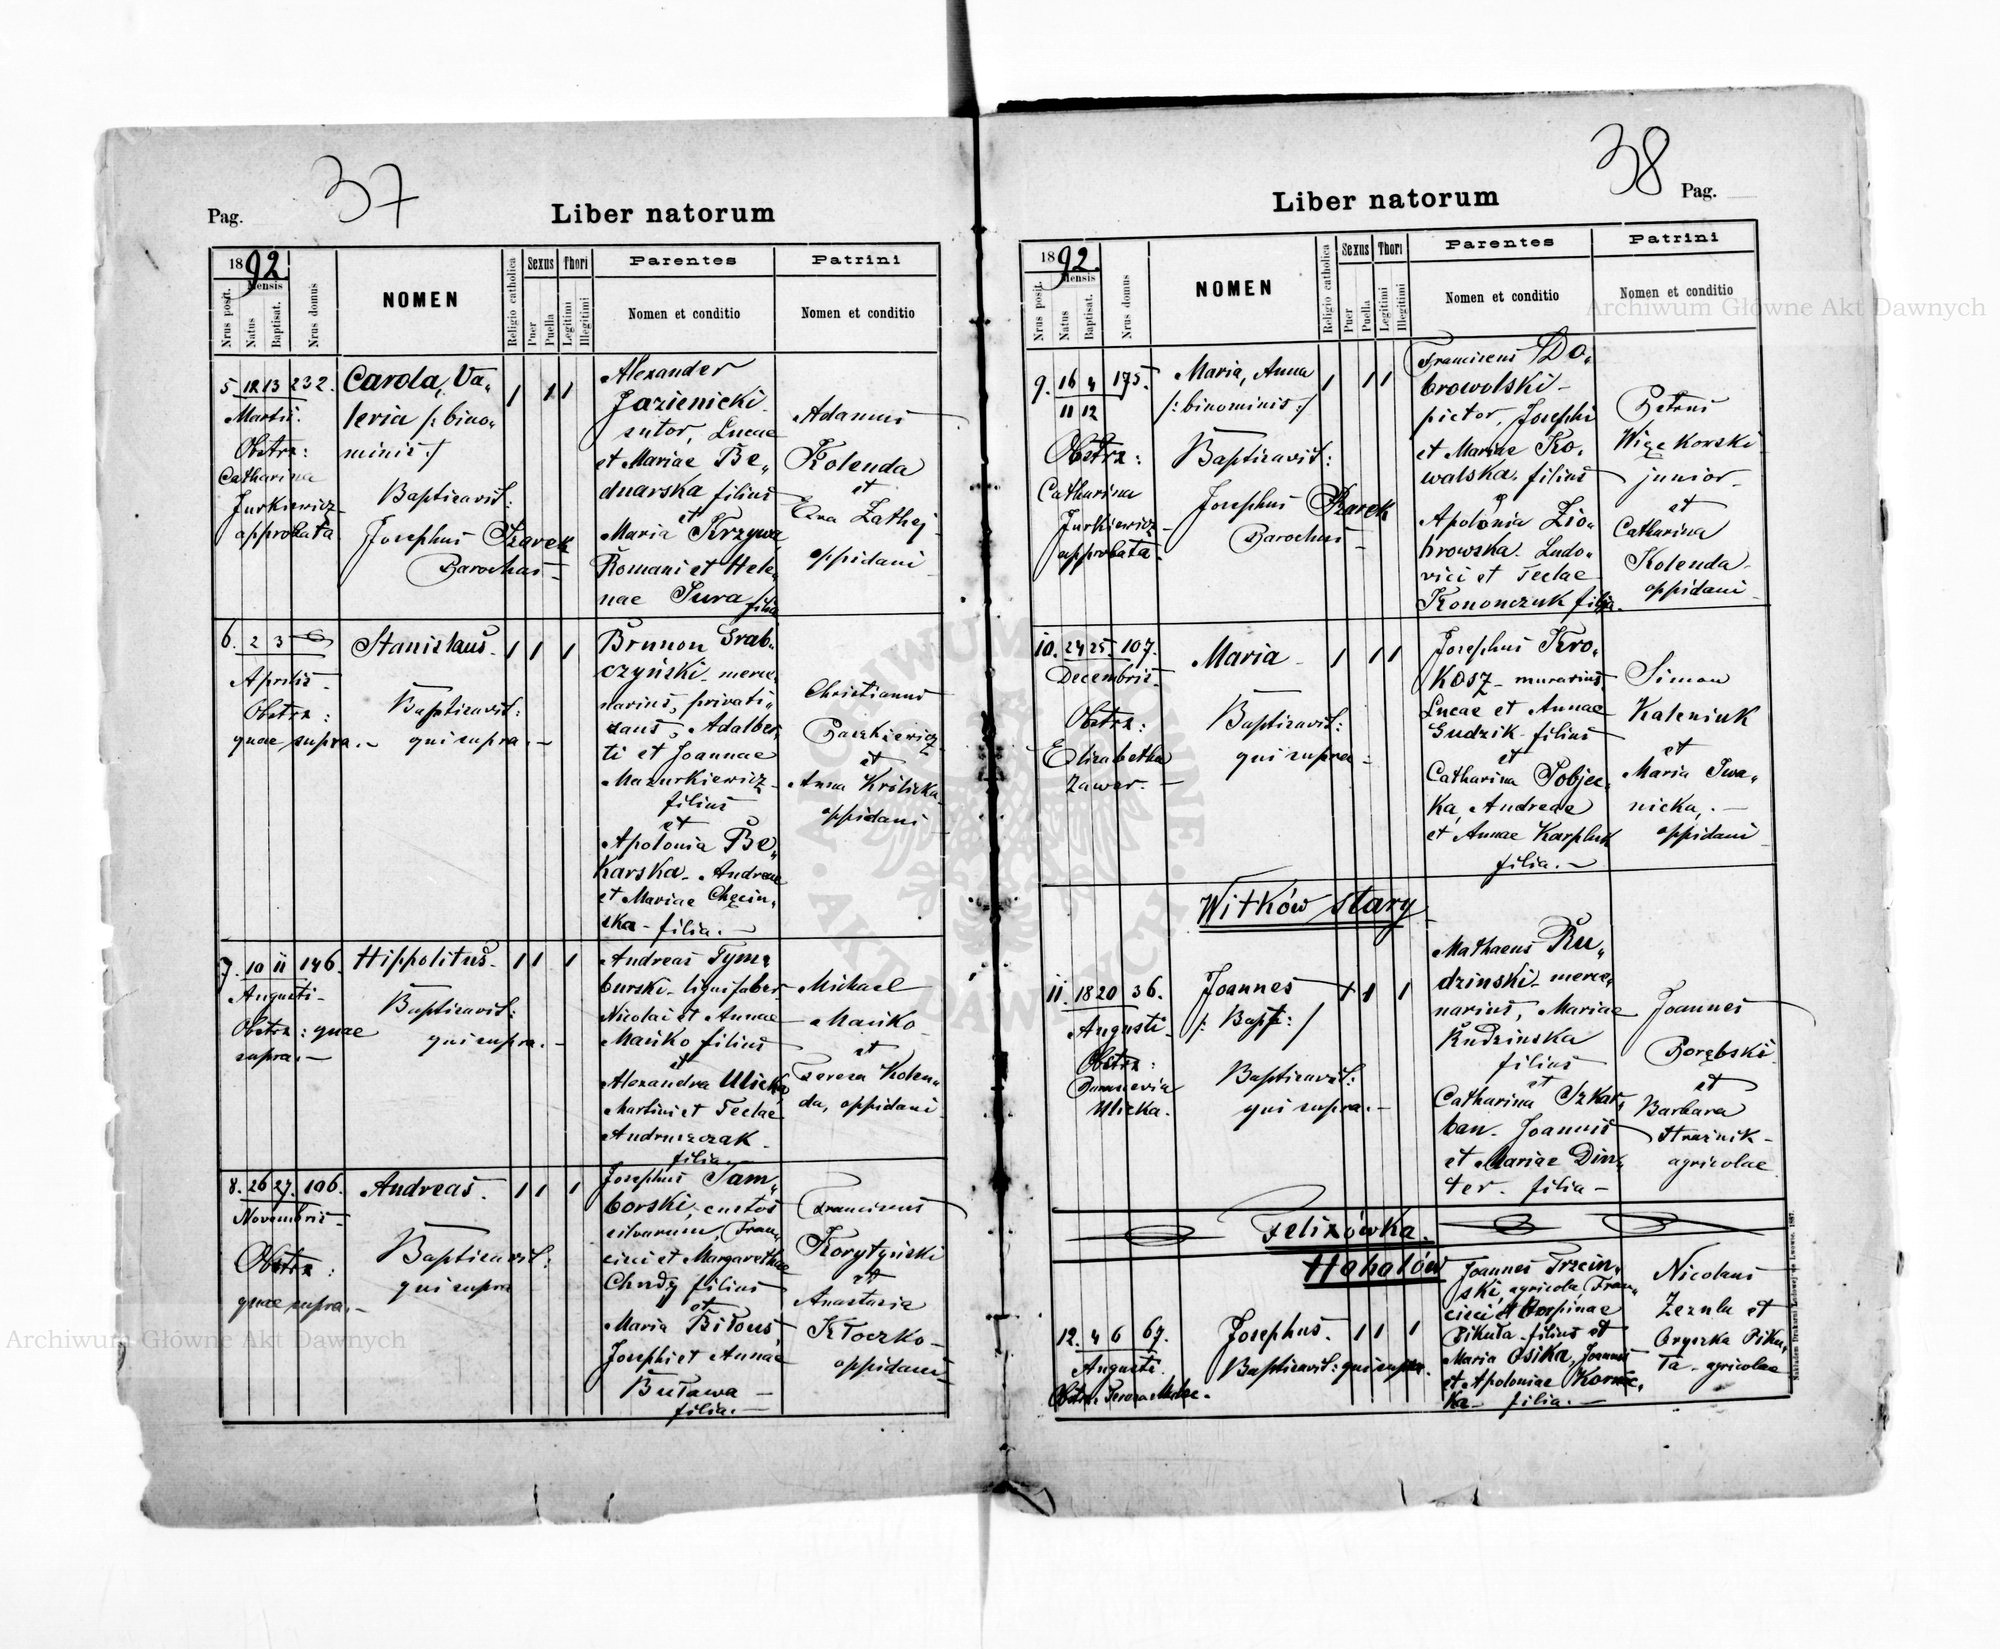 37
Pag.
Liber natorum
1892.
Mensis
Nrus posit.
Natus
Baptisat.
Nrus domus
NOMEN
Religio catholica
Sexus
Puer
Puella
Thori
Legitimi
Illegitimi
Parentes
Nomen et conditio
Patrini
Nomen et conditio
5 12 13 232.
Martii.
Obstrx:
Catharina
Jurkiewicz
approbata
Carola, Va„
leria /: bino„
minis :/
Baptisavit:
Josephus Szarek
Parochus –
1 1 1
Alexander
Jazienicki
sutor, Lucae
et Mariae Be„
dnarska filius
et
Maria Krzywa
Romani et Hele„
nae Sura filia
Adamus
Kolenda
et
Eva Zathej
oppidani
6. 2 3
Aprilis.
Obstrx:
quae supra. –
Stanislaus.
Baptisavit:
qui supra. –
1 1 1
Brunon Grab„
czyński – merce„
narius, privati„
zans, Adalber„
ti et Joannae
Mazurkiewicz
filius
et
Apolonia Be„
karska – Andreae
et Mariae Chęcin„
ska – filia. –
Christianus
Paszkiewicz
et
Anna Królicka
oppidani
7. 10 11 146.
Augusti –
Obstrx: quae
supra. –
Hippolitus.
Baptisavit:
qui supra. –
1 1 1
Andreas Tym„
burski – lignifaber
Nicolai et Annae
Mańko filius
et
Alexandra Ulicka,
Martini et Teclae
Andruszczak.
filia. –
Michael
Mańko
et
Teresa Kolen„
da, oppidani
8. 26 27. 106.
Novembris –
Obstrx:
quae supra. –
Andreas.
Baptisavit:
qui supra
1 1 1
Josephus Sam„
borski, custos
silvarum, Fran„
cisci et Margarethae
Chudy filius
et
Maria Biłous,
Josephi et Annae
Buława –
filia. –
Franciscus
Korytyński
et
Anastasia
Kłoczko –
oppidani
38
Pag.
Liber natorum
1892.
Mensis
Nrus posit.
Natus
Baptisat.
Nrus domus
NOMEN
Religio catholica
Sexus
Puer
Puella
Thori
Legitimi
Illegitimi
Parentes
Nomen et conditio
Patrini
Nomen et conditio
9. 16 4 175.
11 12
Obstrx:
Catharina
Jurkiewicz
approbata
Maria, Anna
/: binominis :/
Baptisavit:
Josephus Szarek
Parochus –
1 1 1
Franciscus Do„
browolski –
pictor, Josephi
et Mariae Ko„
walska filius
et
Apolonia Zio„
browska. Ludo„
vici et Teclae
Kononczuk filia.
Petrus
Więckowski
junior –
et
Catharina
Kolenda –
oppidani
10. 24 25. 107.
Decembris.
Obstrx:
Elisabetha
Zawer. –
Maria –
Baptisavit:
qui supra –
1 1 1
Josephus Kro„
kosz – murarius,
Lucae et Annae
Gudzik – filius
et
Catharina Sobjec„
ka, Andreae
et Annae Karpluk
filia. –
Simon
Kaleniuk
et
Maria Iwa„
nicka, –
oppidani
Witków stary
11. 18 20 36.
Augusti –
Obstrx:
Ulicka.
Joannes
/: Bapt: /
Baptisavit:
qui supra. –
1 1 1
Mathaeus Ru„
dzinski – merce„
narius, Mariae
Rudzinska
filius
et
Catharina Szkar„
ban – Joannis
et Mariae Din„
ter. filia –
Joannes
Porębski
et
Barbara
Strażnik –
agricolae
Felixówka.
Hohołów
12. 4 6 67.
Augusti
Josephus.
Baptisavit: qui supra.
1 1 1
Joannes Trzcin„
ski, agricola, Fran„
cisci et
Pikuła filius et
Maria Osika, Joannis
et Apoloniae Kornic„
ka – filia. –
Nicolaus
Zezula et
Gryszka Piku„
ła – agricolae
Archiwum Główne Akt Dawnych
Archiwum Główne Akt Dawnych